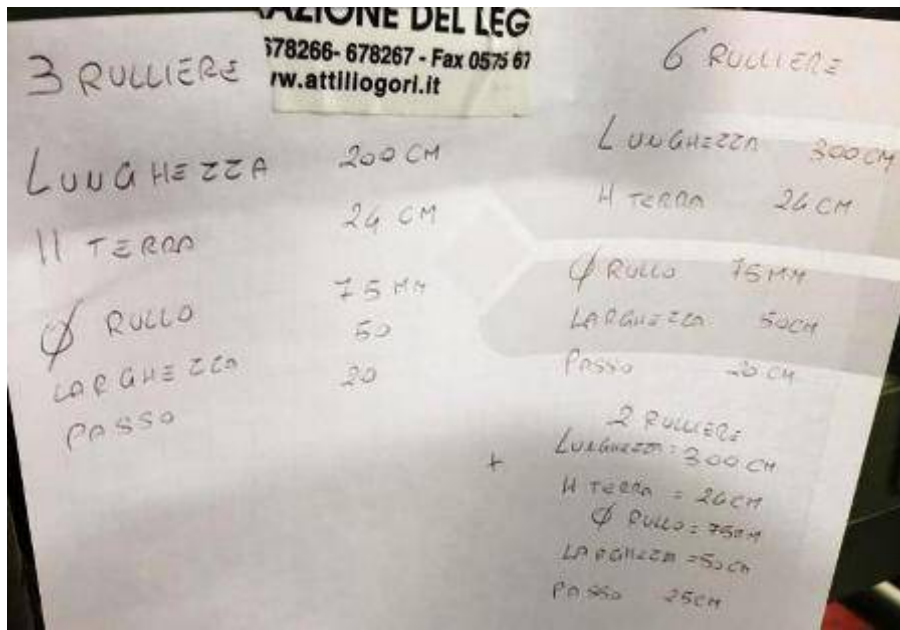 AZIONE DEL LEG
678266- 678267 - Fax 0575 67
w.attiliogori.it
3 RULLIERE
LUNGHEZZA 200 CM
H TERRA 24 CM
Ø RULLO 75 MM
LARGHEZZA 50
PASSO 20
6 RULLIERE
LUNGHEZZA 300 CM
H TERRA 24 CM
Ø RULLO 75 MM
LARGHEZZA 50CM
PASSO 20 CM
+
2 RULLIERE
LUNGHEZZA = 300 CM
H TERRA = 24CM
Ø RULLO = 75MM
LARGHEZZA = 50CM
PASSO 25CM